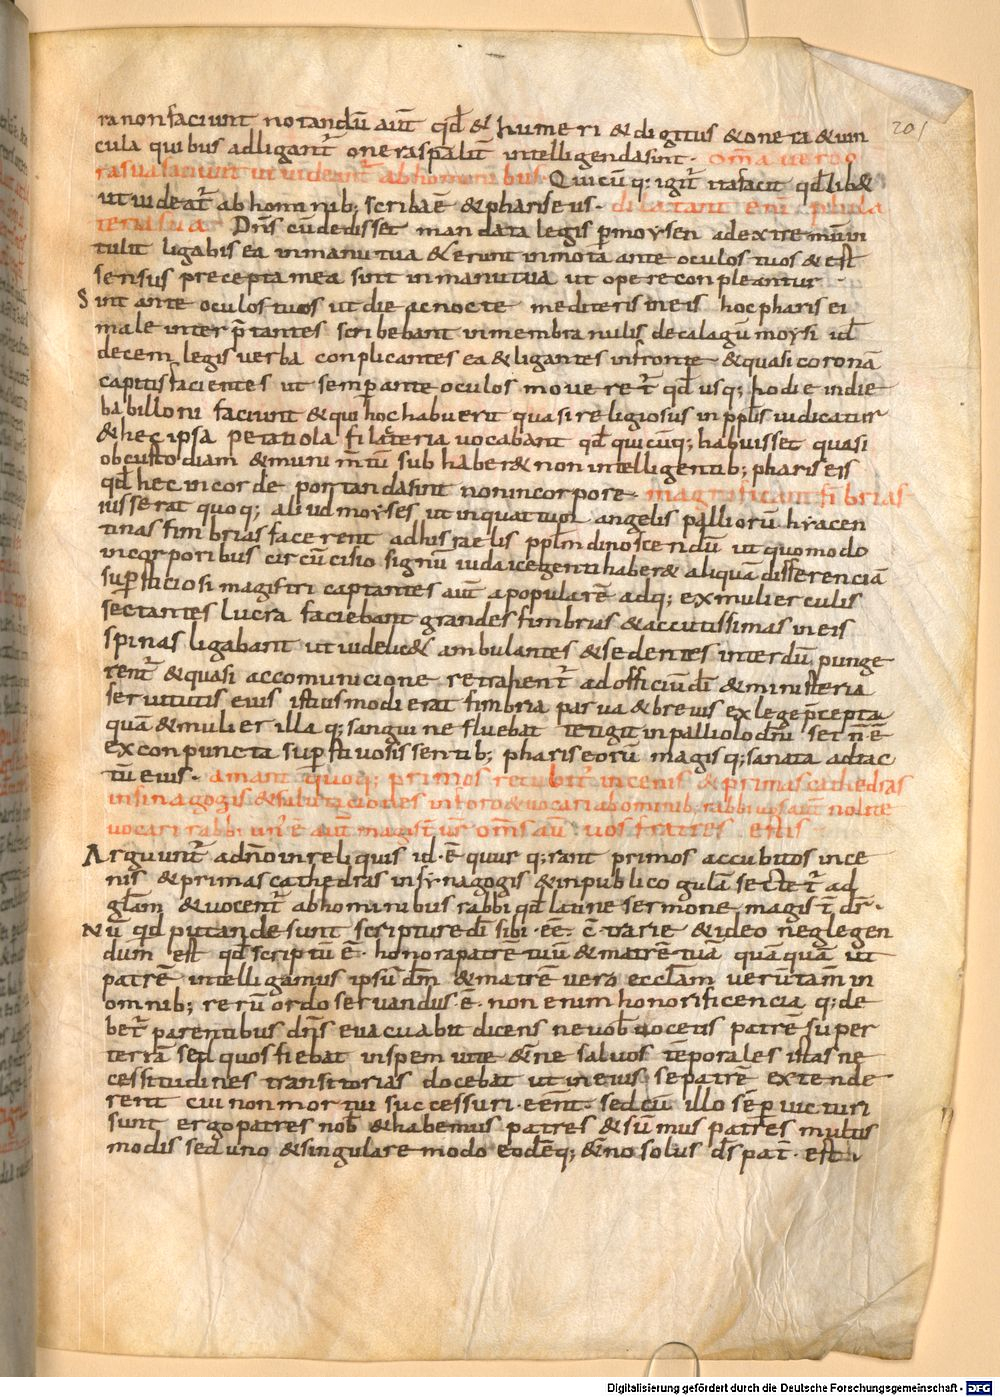 201
ra non faciunt notandū aut̄ qđ & humeri & digitus & onera & uin
cula quibus adligant̄ onera spalit̄ intelligenda sint· om̄a uero o
ra sua faciunt ut uideant̄ ab hominibus· Quicūq; igit̄ ita facit qđlib&
ut uideat̄ ab hominib; scriba ē & phariseus· dilatant enī phila
teria sua· Dn̄s cū dedisset mandata legis p moysen ad extremū in
tulit ligabis ea in manu tua & erunt inmota ante oculos tuos & est
sensus precepta mea sint in manu tua ut opere conpleantur
Sint ante oculos tuos ut die ac nocte mediteris in eis hoc pharisei
male interp̄tantes scribebant in membranulis decalagū moysi id̄
decem legis uerba conplicantes ea & ligantes in fronte & quasi coronā
capitis facientes ut semp ante oculos moueret̄ qđ usq; hodie indie
babilloni faciunt & qui hoc habuerit quasi religiosus in pplis iudicatur
& hec ipsa petatiola filacteria uocabant qđ quicūq; habuisset quasi
ob custodiam & munim̄tū sub haber& non intelligentib; phariseis
qđ hec in corde portanda sint non in corpore· magnificant fimbrias
iusserat quoq; aliud moyses ut in quattuor angelis palliorū hyacen
tinas fimbrias facerent ad hisraelis pplm dinoscendū ut quomodo
in corporibus circūcisio signū iudaice genti haber& aliquā differenciā
supsticiosi magistri captantes aut̄ a populare ad q; ex mulierculis
sectantes lucra faciebant grandes fimbrias & accutissimas in eis
spinas ligabant ut uidelic& ambulantes & sedentes interdū punge
rent̄ & quasi accomunicione retrahent̄ ad officiū dī & ministeria
seruitutis eius istiusmodi erat fimbria parua & breuis ex lege p̄cepta
quā & mulier illa q; sanguine fluebat tetigit in palliolo dn̄i set n̄ ē
ex conpuncta supstuosis sentib; phariseorū magisq; sanata ad tac
tū eius· amant quoq; primos recubit̄ in cenis & primas cathedras
in sinagogis & salutaciones in foro & uocari ab hominib; rabbi uos aut̄ nolite
uocari rabbi un̄ ē aut̄ magist̄ ur̄ om̄s aū uos fratres estis
Arguunt̄ a dn̄o in reliquis id·ē quur q;rant primos accubitos in ce
nis & primas cathedras in synagogis & in publico gulā sectet̄ ad
glām & uocent̄ ab hominibus rabbi qđ latine sermone magist̄ dr̄·
Nū qđ putande sunt scripture dī sibi·eē·c̄trarie & ideo neglegen
dum est qđ scriptū ē· honora patrē tuū & matrē tuā quāquā ut
patrē intelligamus ipsū dm̄ & matrē uero eccl̄am uerūtam̄ in
omnib; rerū ordo seruandus·ē· non enim honorificencia q; de
bet̄ parentibus dn̄s euacuabit dicens ne uob̄ uocetis patrē super
terrā sed quos fiebat in spem uite &̄ne saluos tēporales istas ne
cessitudines transitorias docebat ut in eius se patrē extende
rent cui non morituri successuri·eēnt· sed cū illo sēp uicturi
sunt ergo patres nob̄ & habemus patres & sūmus patres multis
modis sed uno & singulare modo eodēq; &̄no solus ds̄ pat̄·est
Digitalisierung gefördert durch die Deutsche Forschungsgemeinschaft - DFG